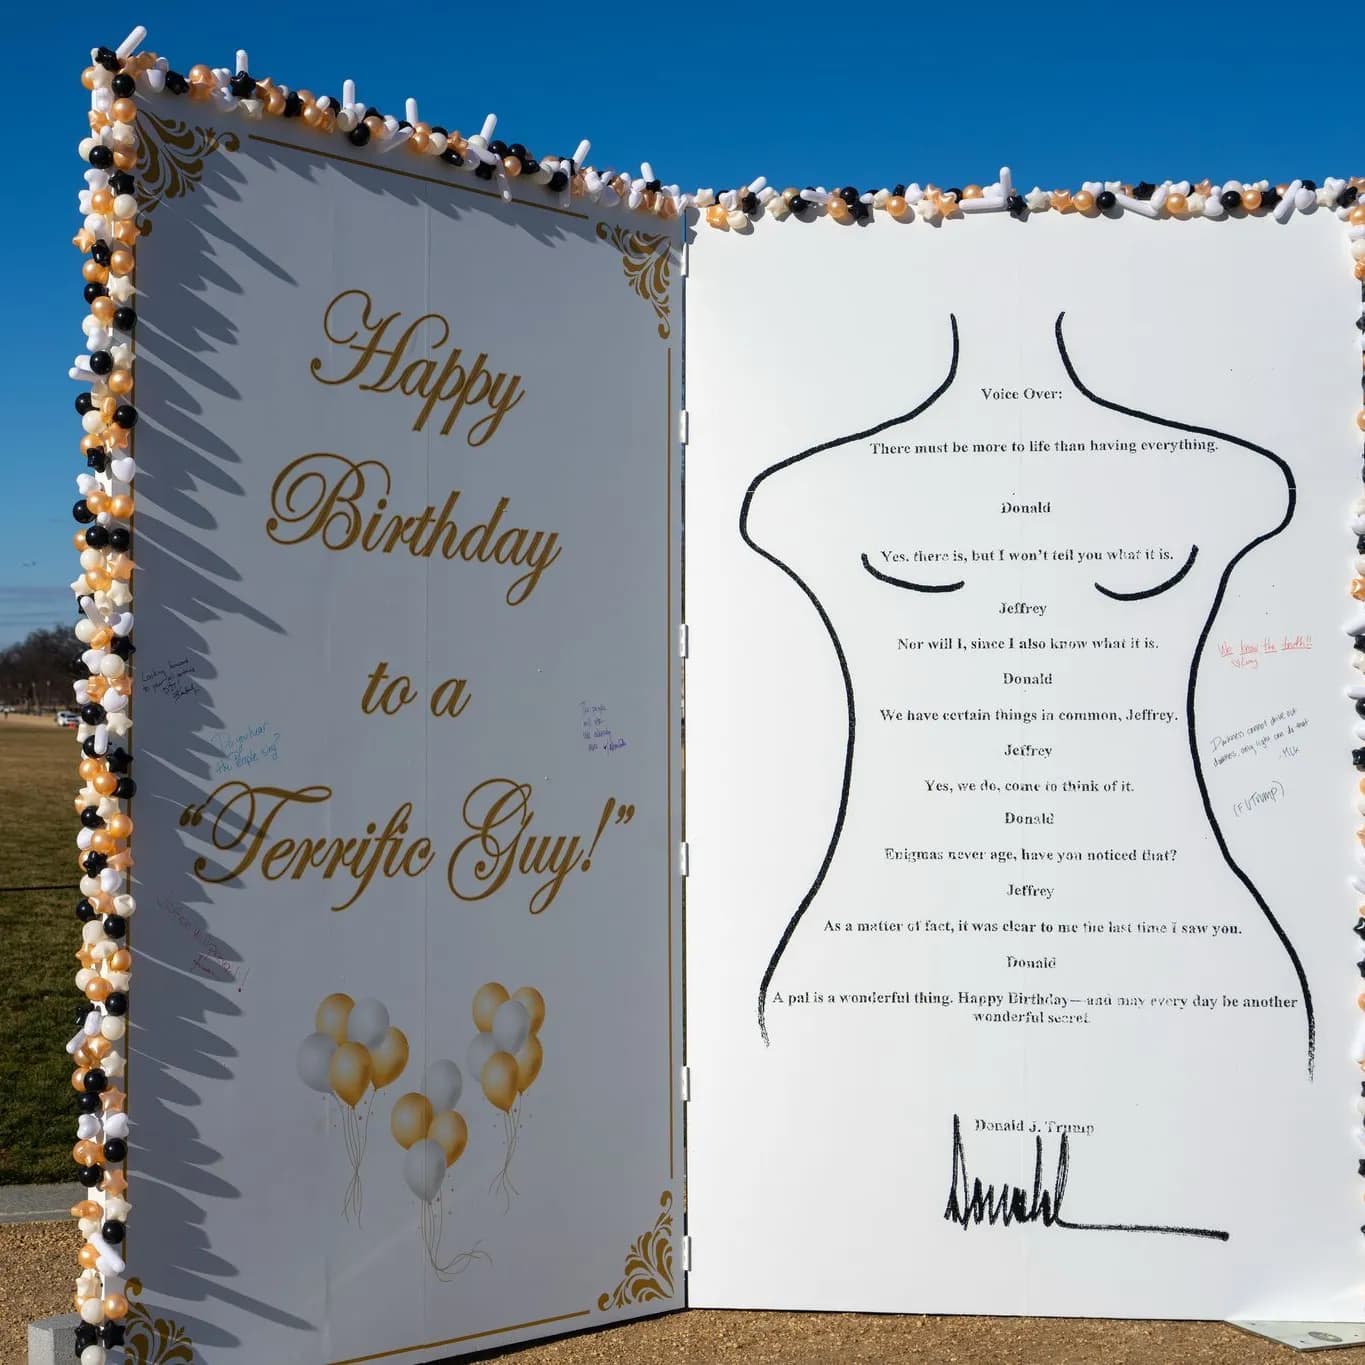 Happy
Birthday
to a
“Terrific Guy!”
Do you hear
the People sing?
Voice Over:
There must be more to life than having everything.
Donald
Yes, there is, but I won’t tell you what it is.
Jeffrey
Nor will I, since I also know what it is.
Donald
We have certain things in common, Jeffrey.
Jeffrey
Yes, we do, come to think of it.
Donald
Enigmas never age, have you noticed that?
Jeffrey
As a matter of fact, it was clear to me the last time I saw you.
Donald
A pal is a wonderful thing. Happy Birthday—and may every day be another
wonderful secret.
Donald J. Trump
Donald
We know the truth!!
Darkness cannot drive out
darkness, only light can do that
- MLK
(FU Trump)